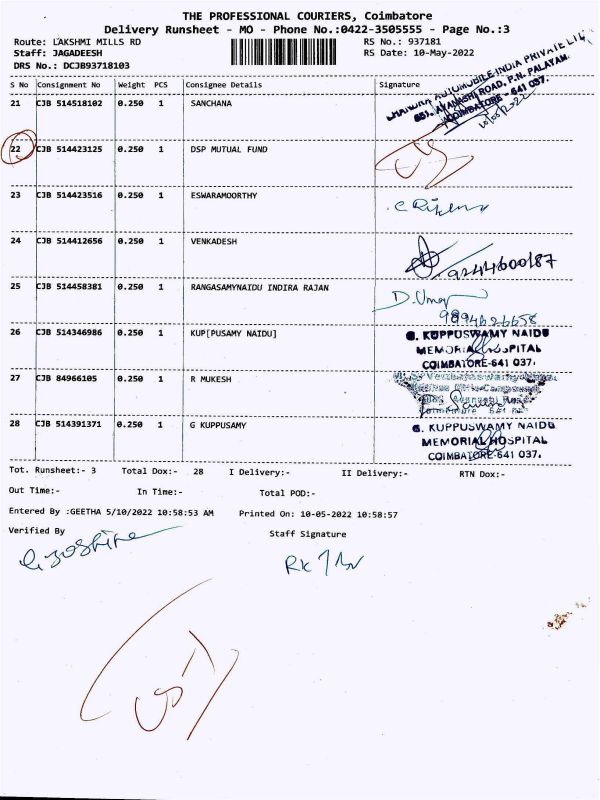 THE PROFESSIONAL COURIERS, Coimbatore
Delivery Runsheet - MO - Phone No.:0422-3505555 - Page No.:3
Route: LAKSHMI MILLS RD RS No.: 937181
Staff: JAGADEESH RS Date: 10-May-2022
DRS No.: DCJB93718103
S No Consignment No Weight PCS Consignee Details Signature
21 CJB 514518102 0.250 1 SANCHANA
AUTOMOBILE INDIA PRIVATE
AVANASHI ROAD, P.N. PALAYAM,
COIMBATORE - 641 037.
22 CJB 514423125 0.250 1 DSP MUTUAL FUND
23 CJB 514423516 0.250 1 ESWARAMOORTHY
24 CJB 514412656 0.250 1 VENKADESH
9244600187
25 CJB 514458381 0.250 1 RANGASAMYNAIDU INDIRA RAJAN
D.
9894626658
26 CJB 514346986 0.250 1 KUP[PUSAMY NAIDU]
G. KUPPUSWAMY NAIDU
MEMORIAL HOSPITAL
COIMBATORE-641 037.
27 CJB 84966105 0.250 1 R MUKESH
28 CJB 514391371 0.250 1 G KUPPUSAMY
G. KUPPUSWAMY NAIDU
MEMORIAL HOSPITAL
COIMBATORE-641 037.
Tot. Runsheet:- 3 Total Dox:- 28 I Delivery:- II Delivery:- RTN Dox:-
Out Time:- In Time:- Total POD:-
Entered By :GEETHA 5/10/2022 10:58:53 AM Printed On: 10-05-2022 10:58:57
Verified By Staff Signature